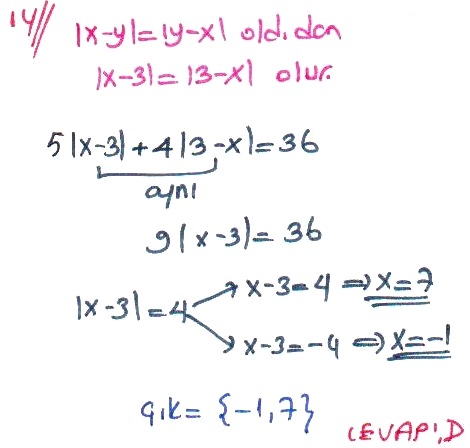 14//
|x-y|=|y-x| old.dan
|x-3|=|3-x| olur.
5|x-3|+4|3-x|=36
aynı
9|x-3|=36
|x-3|=4
x-3=4 ⇒ x=7
x-3=-4 ⇒ x=-1
Ç.K= {-1,7}
CEVAP:D